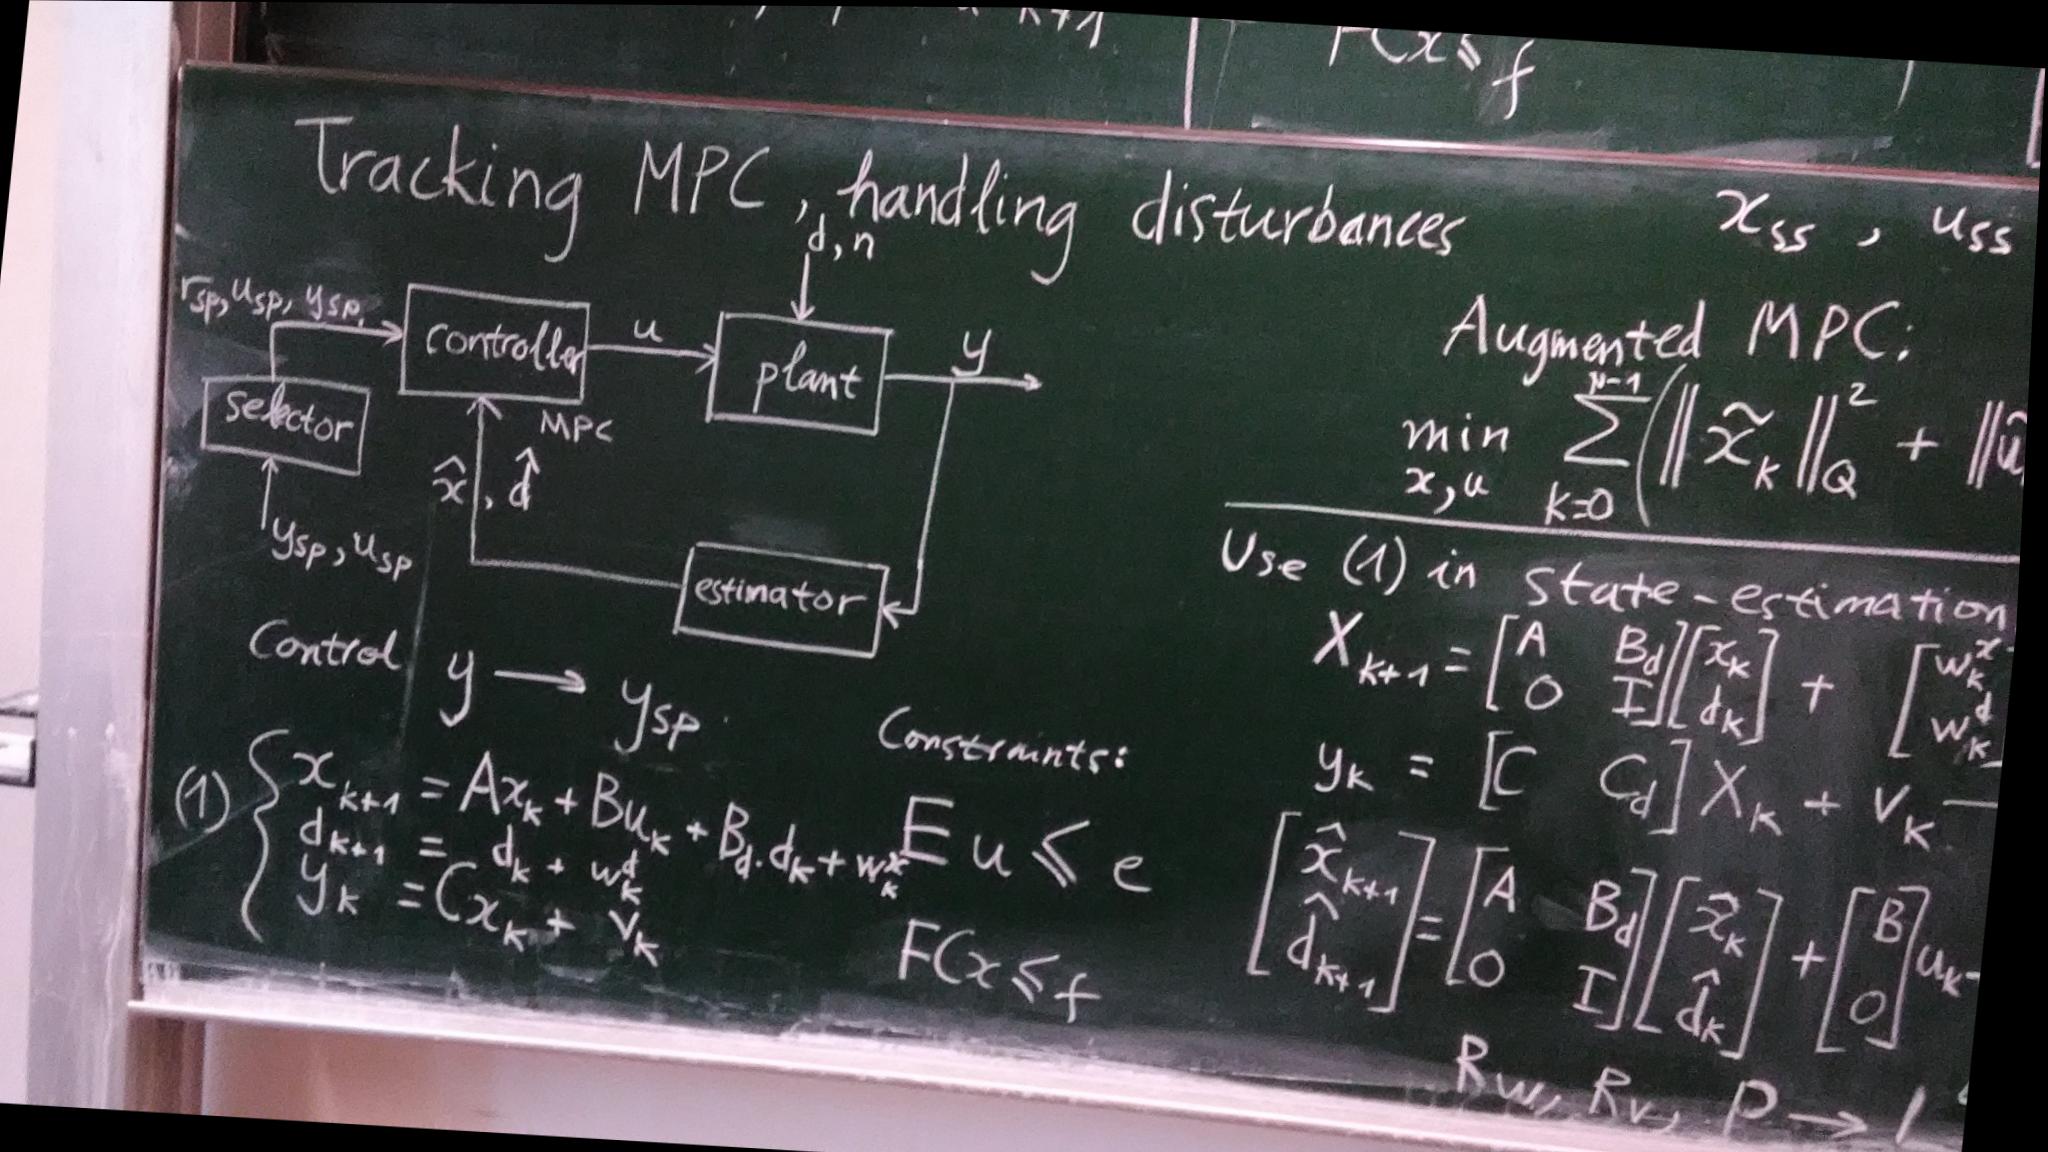 k+1
FCx ≤ f
Tracking MPC, handling disturbances
d, n
r_sp, u_sp, y_sp
controller
u
plant
y
selector
MPC
x̂, d̂
y_sp, u_sp
estimator
Control y → y_sp
(1) { x_{k+1} = Ax_k + Bu_k + B_d·d_k + w_k^x
d_{k+1} = d_k + w_k^d
y_k = Cx_k + v_k
Constraints:
Eu ≤ e
FCx ≤ f
x_ss, u_ss
Augmented MPC:
min_{x,u} ∑_{k=0}^{N-1} ( ||x̃_k||²_Q + ||ũ
Use (1) in state-estimation
X_{k+1} = [A B_d; 0 I] [x_k; d_k] + [w_k^x; w_k^d
y_k = [C C_d] X_k + v_k
[x̂_{k+1}; d̂_{k+1}] = [A B_d; 0 I] [x̂_k; d̂_k] + [B; 0] u_k
R_w, R_v, P →